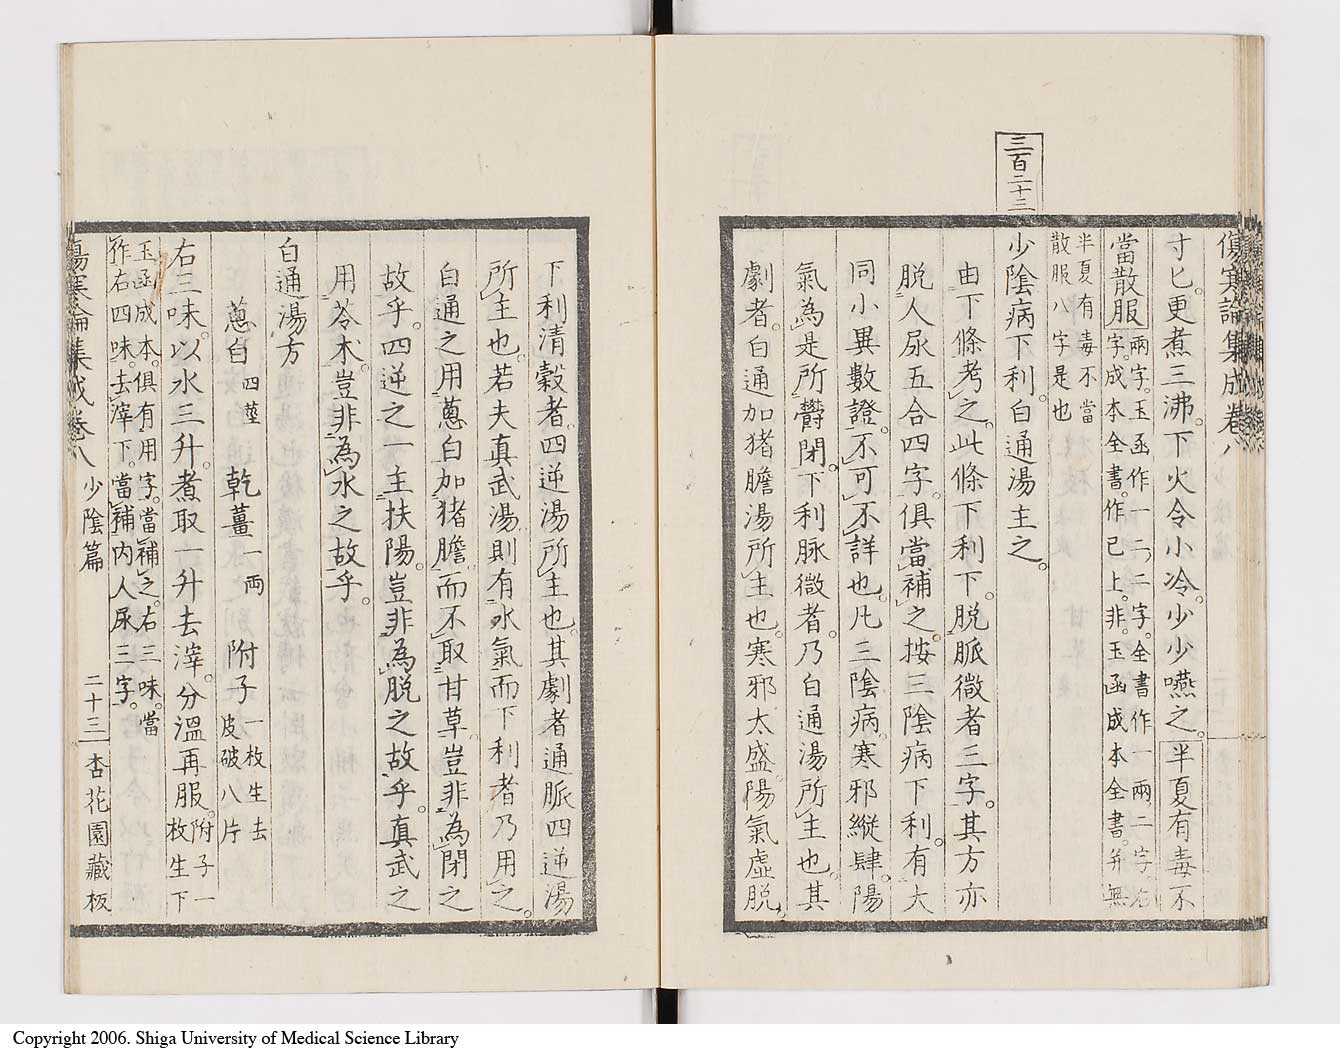 三百二十三
傷寒論集成卷八
寸匕。更煮三沸。下火令小冷。少少嚥之。半夏有毒不
當散服。兩字。玉函作一二。二字。全書作一兩二字。右
字。成本全書。作已上。非。玉函成本全書。并無
半夏有毒不當
散服八字是也
少陰病下利。白通湯主之。
由下條考之。此條下利下。脫脈微者三字。其方亦
脫人尿五合四字。俱當補之。按三陰病下利。有大
同小異數證。不可不詳也。凡三陰病。寒邪縱肆。陽
氣為是所欝閉。下利脉微者。乃白通湯所主也。其
劇者。白通加猪膽湯所主也。寒邪太盛。陽氣虛脫。
下利清穀者。四逆湯所主也。其劇者通脈四逆湯
所主也。若夫真武湯則有水氣而下利者乃用之。
白通之用蔥白加猪膽。而不取甘草。豈非為閉之
故乎。四逆之一主扶陽。豈非為脫之故乎。真武之
用苓术。豈非為水之故乎。
白通湯方
蔥白四莖 乾薑一兩 附子一枚生去
皮破八片
右三味。以水三升。煮取一升去滓。分溫再服。附子一
枚生下
玉函成本。俱有用字。當補之。右三味。當
作右四味。去滓下。當補內人尿三字。
傷寒論集成卷八 少陰篇 二十三 杏花園藏板
Copyright 2006. Shiga University of Medical Science Library